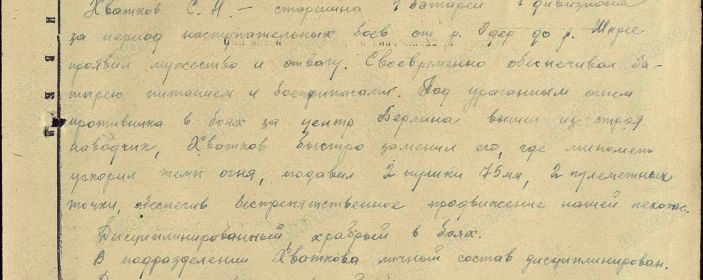 Хватков С. Н. – старшина 1 батареи 1 дивизиона
за период наступательных боев от р. Одер до р. Шпрее
проявил мужество и отвагу. Своевременно обеспечивал ба-
тарею питанием и боеприпасами. Под ураганным огнем
противника в боях за центр Берлина вышел из строя
наводчик, Хватков быстро заменил его, где
ускорил темп огня, подавил 2 пушки 75мм, 2 пулеметных
точки, обеспечив беспрепятственное продвижение нашей пехоте.
Дисциплинированный, храбрый в боях.
В подразделении Хваткова личный состав дисциплинирован.